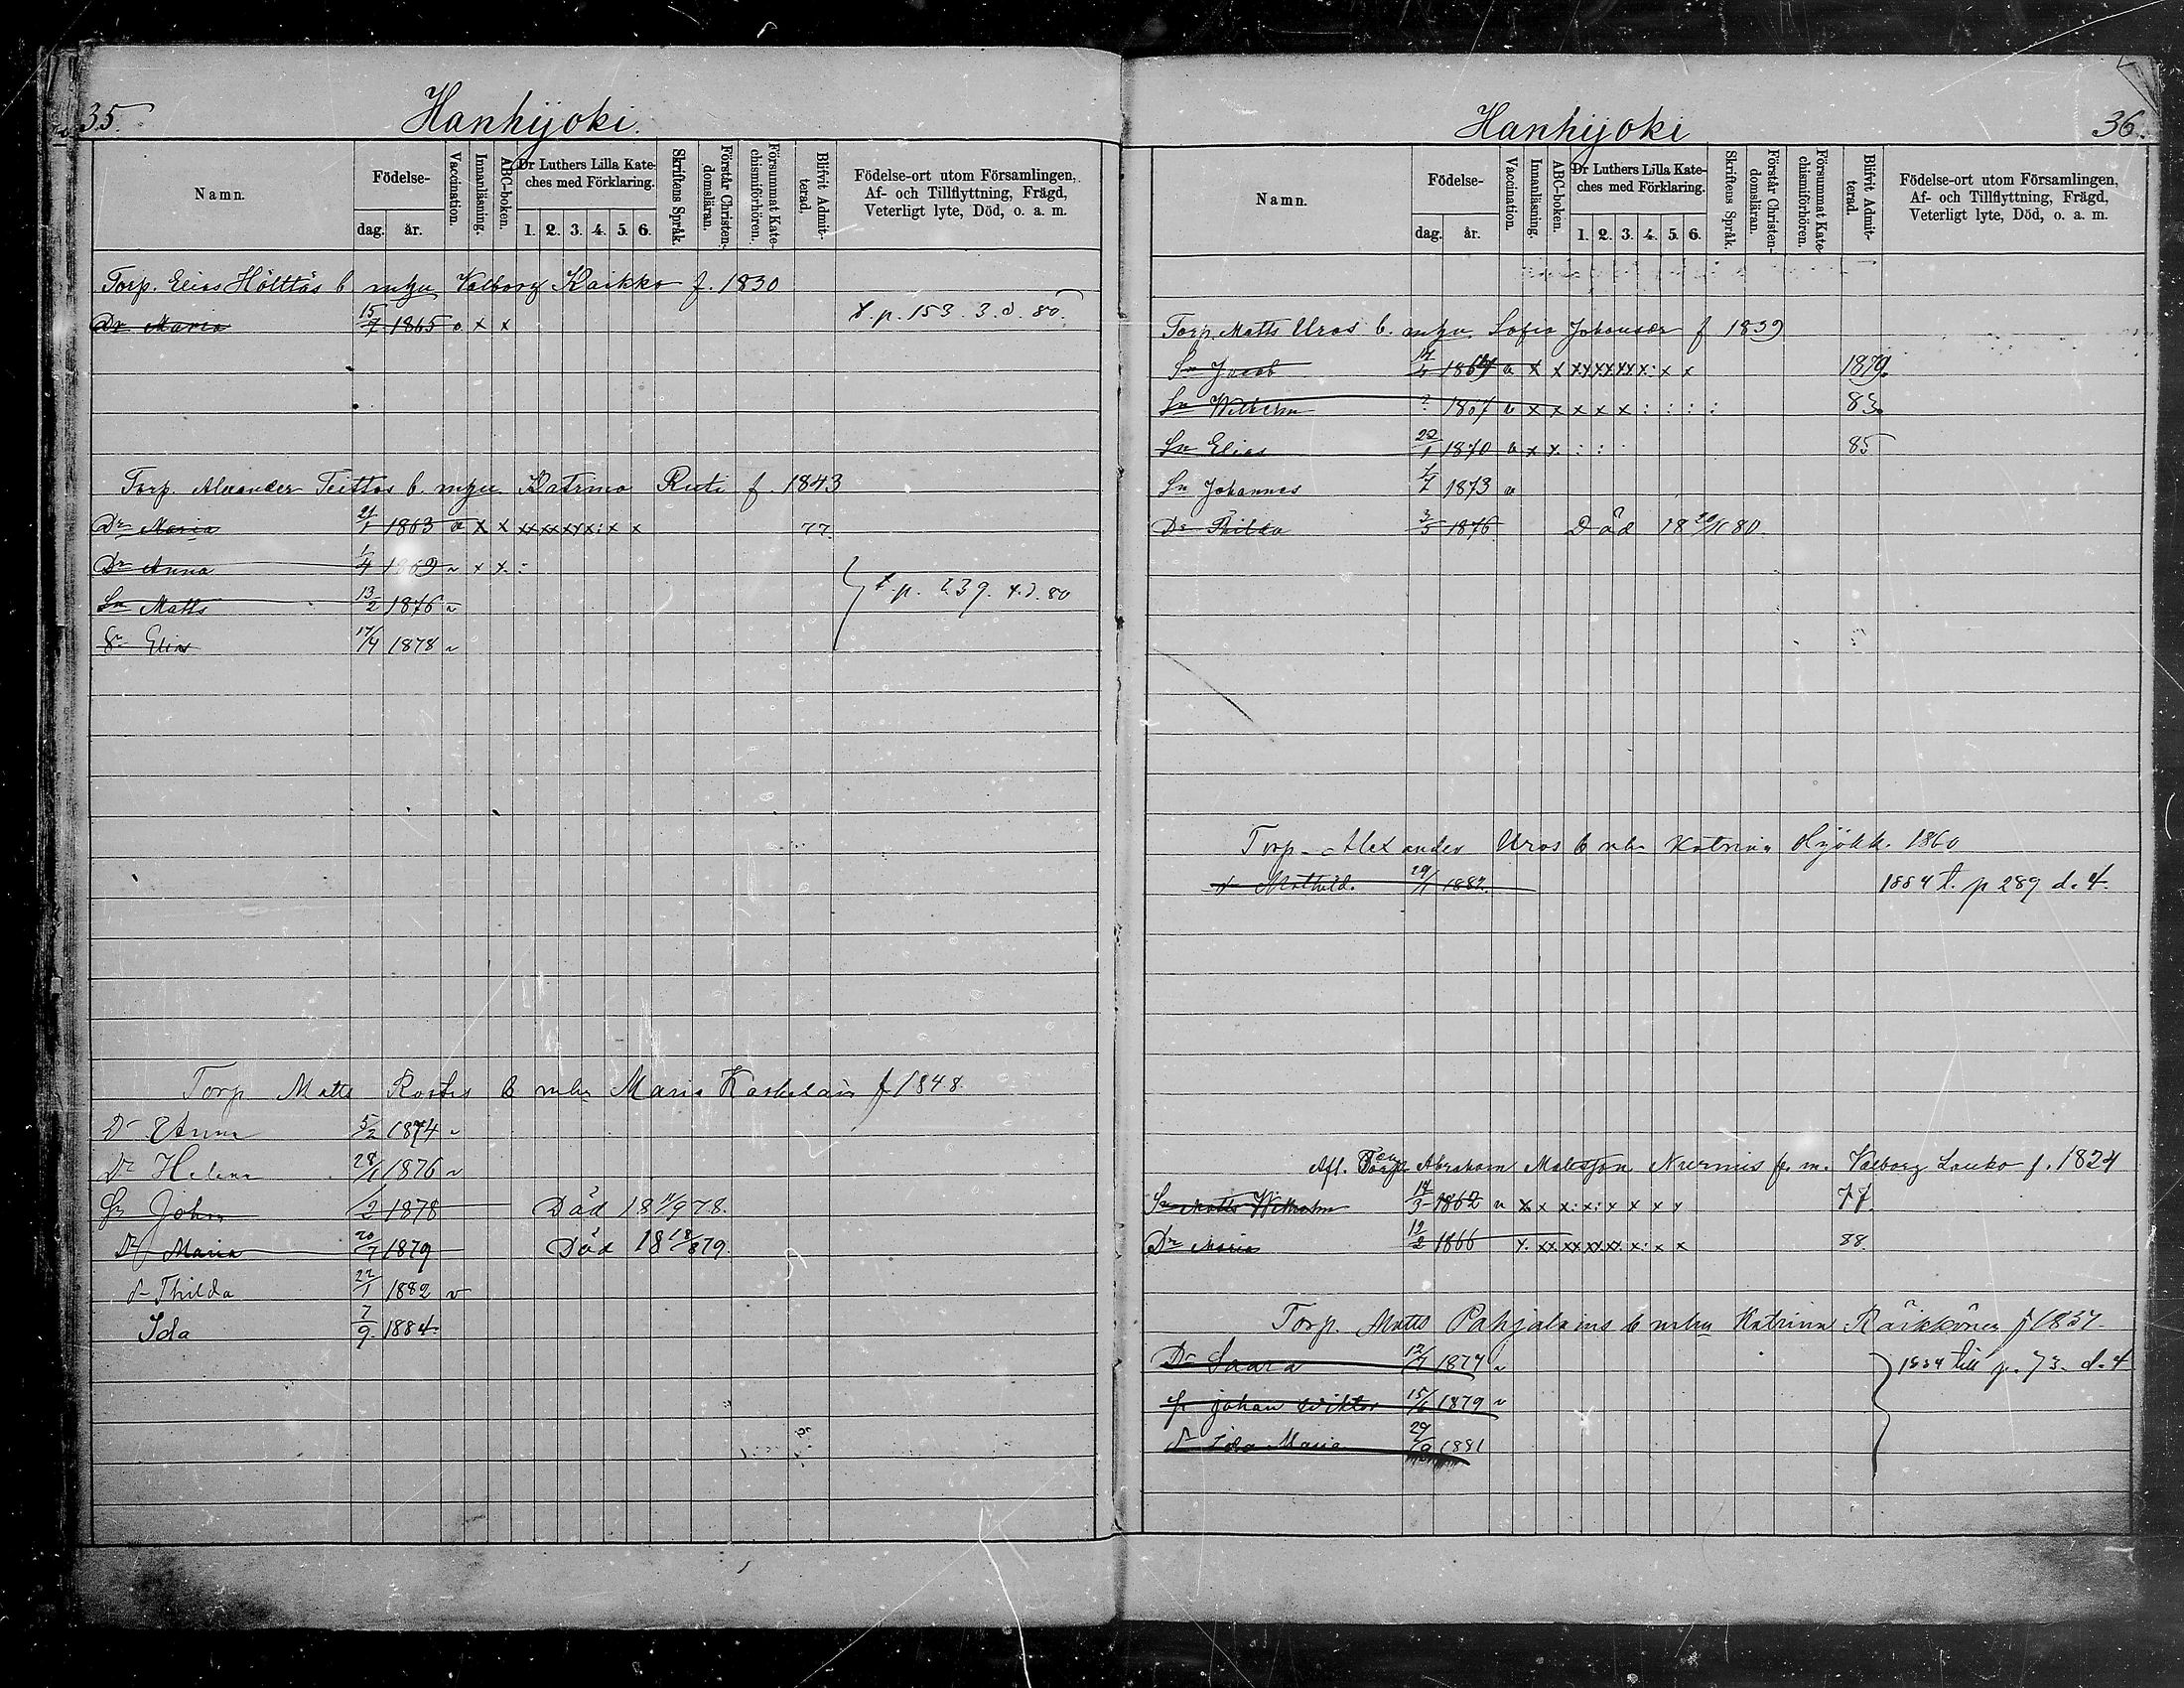 35.
Hanhijoki.
Namn.
Födelse-
dag. år.
Vaccination.
Innanläsning.
ABC-boken.
Dr Luthers Lilla Kate-
ches med Förklaring.
1. 2. 3. 4. 5. 6.
Skriftens Språk.
Förstår Christen-
domsläran.
Försummat Kate-
chismiförhören.
Blifvit Admit-
terad.
Födelse-ort utom Församlingen,
Af- och Tillflyttning, Frägd,
Veterligt lyte, Död, o. a. m.
Torp. Elias Hölttäs b. m hu Valborg Kaikko f. 1830
Dr Maria 15/7 1865 x x t. p. 153. 3. d. 80.
Torp. Alexander Teittos b. m hu Katrina Ruti f. 1843
Dr Maria 21/1 1863 v x x xx xx xx x: x x 77.
Dr Anna 1/4 1869 v x x :
Sn Matts 13/2 1876 v t. p. 239. 4. d. 80
Sn Elias 17/4 1878 v
Torp Matts Rostis b m hu Maria Kaskelain f 1848.
Dr Anna 5/2 1874 v
Dr Helena 28/1 1876 v
Sn Johan /2 1878 Död 18 11/9 78.
Dr Maria 20/7 1879 Död 18 18/8 79.
dr Thilda 22/1 1882 v
Ida 7/9 1884.
Hanhijoki
36.
Namn.
Födelse-
dag. år.
Vaccination.
Innanläsning.
ABC-boken.
Dr Luthers Lilla Kate-
ches med Förklaring.
1. 2. 3. 4. 5. 6.
Skriftens Språk.
Förstår Christen-
domsläran.
Försummat Kate-
chismiförhören.
Blifvit Admit-
terad.
Födelse-ort utom Församlingen,
Af- och Tillflyttning, Frägd,
Veterligt lyte, Död, o. a. m.
Torp. Matts Uros b. m hu Sofia f 1839
Sn Jacob v x x xx xx xx x: x x 1879.
Sn Wilhelm 1867 v x x x x x : : : : 83.
Sn Elias 22/1 1870 v x x. : : : 85
Sn Johannes 1/7 1873 v
Dr Thilda 3/5 1876 Död 18 80.
Torp. Alexander Uros b m hu Katrina 1860
dr Mathild. 29/1 1882. 1884 t. p 289 d. 4.
Afl. Torp. Abraham Matsson Nurmis f. m. Valborg Lauko f. 1824
Sn Matts Wilhelm 14/3 1862 v x x x: x: x x x x 77.
Dr Maria 19/2 1866 x. xx xx xx x: x x 88.
Torp. Matts Pahjalains b m hu Katrina Räikkönen f 1837
Dr Saara 12/7 1874 v 1884 till p. 73. d. 4
Sn Johan Wiktor 15/6 1879 v
dr Ida Maria 29/9 1881